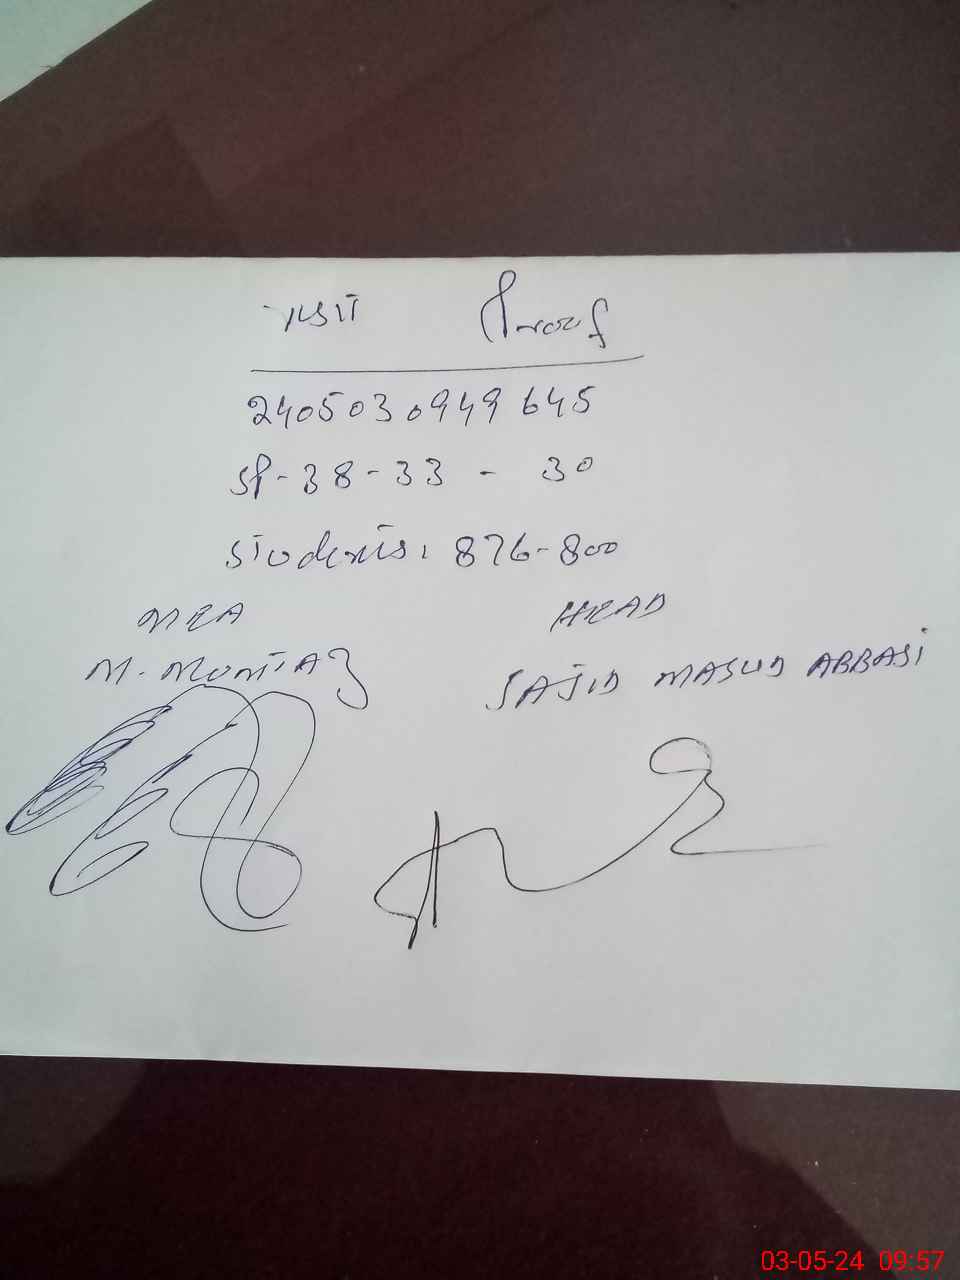 VISIT Proof
240503 0949 645
SP-38-33 - 30
Students: 876-800
MEA HEAD
M. MUMTAZ SAJID MASUD ABBASI
03-05-24 09:57